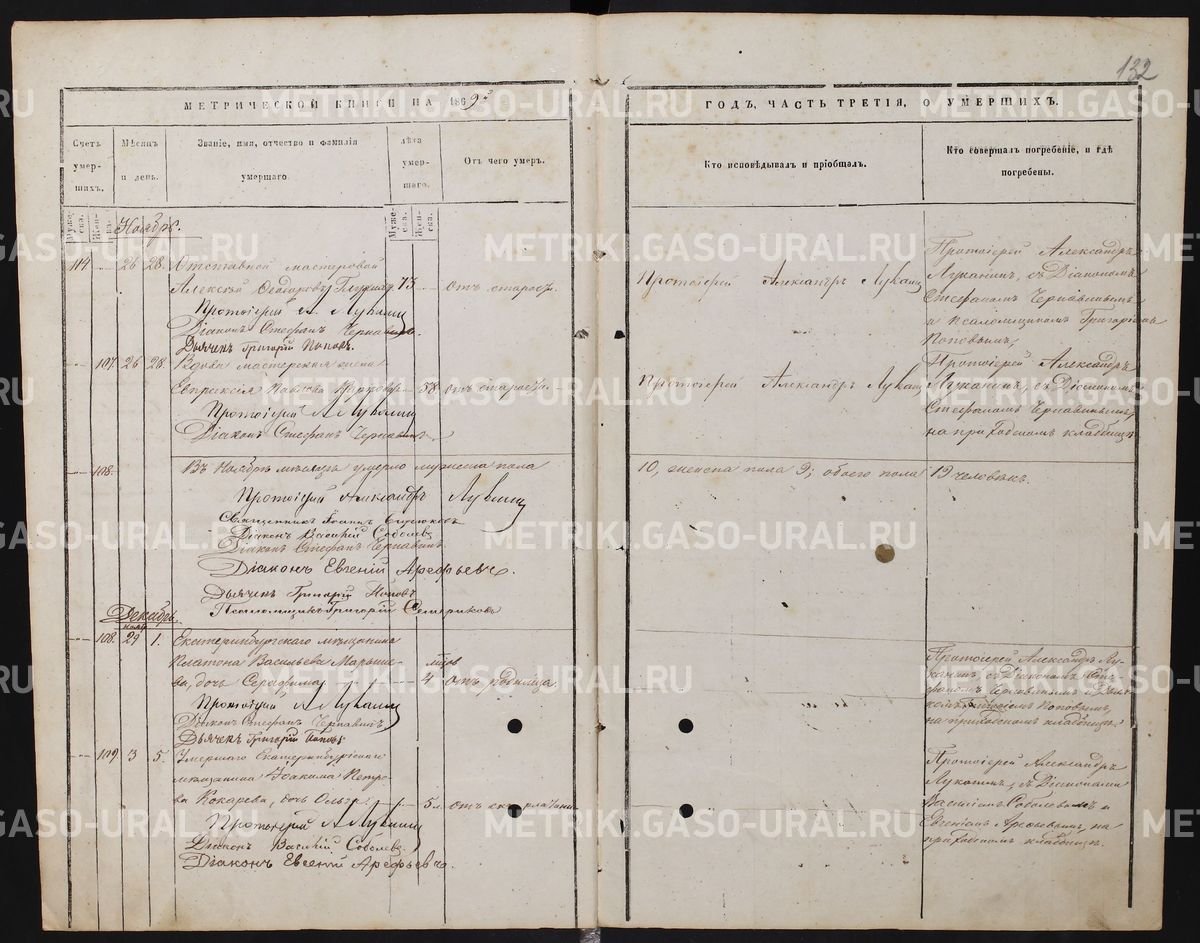 132
МЕТРИЧЕСКОЙ КНИГИ НА 1869й
ГОДЪ, ЧАСТЬ ТРЕТІЯ, О УМЕРШИХЪ.
Счетъ умер-шихъ.
Мѣсяцъ и день.
Званіе, имя, отчество и фамилія умершаго.
Лѣта умер-шаго.
Отъ чего умеръ.
Кто исповѣдывалъ и пріобщалъ.
Кто совершалъ погребеніе, и гдѣ погребены.
Муже-ска.
Жен-ска.
Муже-ска.
Жен-ска.
Ноябрь.
114 26 28. Отставной мастеровой
Алексѣй Ѳеодоровъ 73 отъ старости.
Протоіерей А. Луканинъ
Діаконъ Стефанъ Чернавинъ.
Дьячекъ Григорій Поповъ.
Протоіерей Александръ Луканинъ
Протоіерей Александръ
Луканинъ, съ Діакономъ
Стефаномъ Чернавинымъ
и псаломщикомъ Григоріемъ
Поповымъ,
107. 26 28. Вдова мастерская жена
Евпраксія Павлова 58. отъ старости.
Протоіерей А Луканинъ
Діаконъ Стефанъ Чернавинъ.
Протоіерей Александръ Луканинъ
Протоіерей Александръ
Луканинъ, съ Діакономъ
Стефаномъ Чернавинымъ,
на приходскомъ кладбищѣ
108. Въ Ноябрѣ мѣсяцѣ умерло мужеска пола 10, женска пола 9; обоего пола 19 человѣкъ.
Протоіерей Александръ Луканинъ
Священникъ Іоаннъ
Діаконъ Василій Соболевъ
Діаконъ Стефанъ Чернавинъ
Діаконъ Евгеній Арефьевъ.
Дьячекъ Григорій Поповъ
Псаломщикъ Григорій
Декабрь
нояб.
108. 29 1. Екатеринбургского мѣщанина
Платона Васильева
ва, дочь Серафима мѣсяцовъ 4 отъ родимца.
Протоіерей А Луканинъ
Діаконъ Стефанъ Чернавинъ
Дьячекъ Григорій Поповъ
Протоіерей Александръ Лу-
канинъ, съ Діакономъ Сте-
фаномъ Чернавинымъ и Дьяч-
комъ Григоріемъ Поповымъ,
на приходскомъ кладбищѣ.
109. 3 5. Умершаго Екатеринбургскаго
мѣщанина Іоакима Петро-
ва Кокарева, дочь Ольга 5 л. отъ
Протоіерей А Луканинъ
Діаконъ Василій Соболевъ
Діаконъ Евгеній Арефьевъ.
Протоіерей Александръ
Луканинъ, съ Діаконами
Василіемъ Соболевымъ и
Евгеніемъ Арефьевымъ, на
приходскомъ кладбищѣ.
METRIKI.GASO-URAL.RU